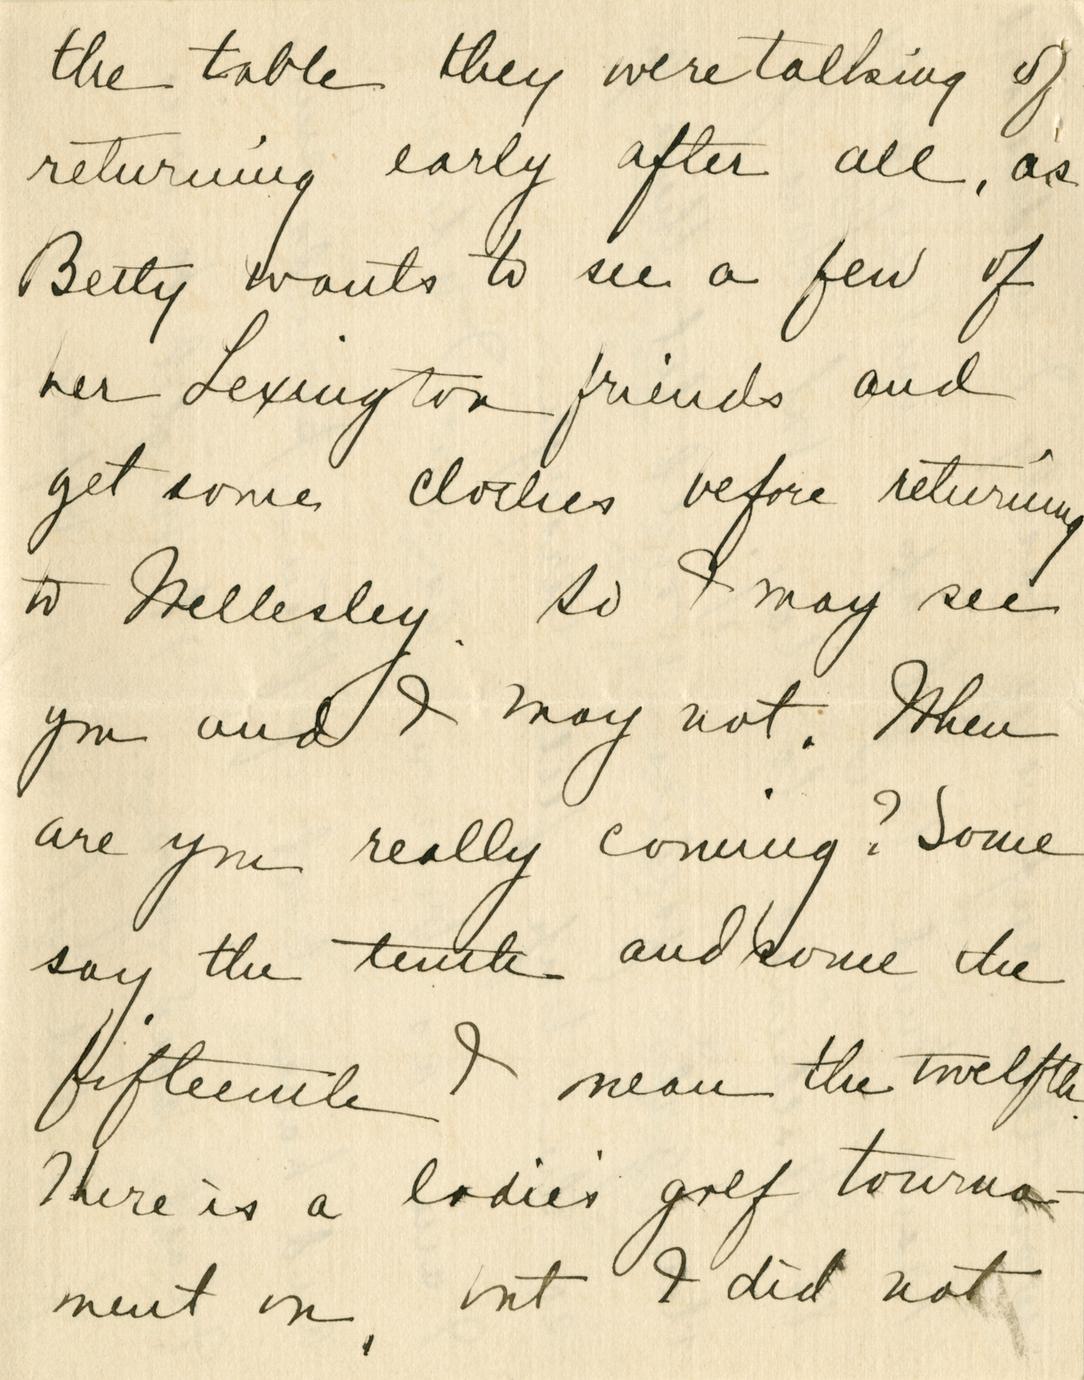 the table they were talking of
returning early after all, as
Betty wants to see a few of
her Lexington friends and
get some clothes before returning
to Wellesley. So I may see
you and I may not. When
are you really coming? Some
say the tenth and some the
fifteenth I mean the twelfth.
There is a ladies' golf tourna-
ment on, but I did not